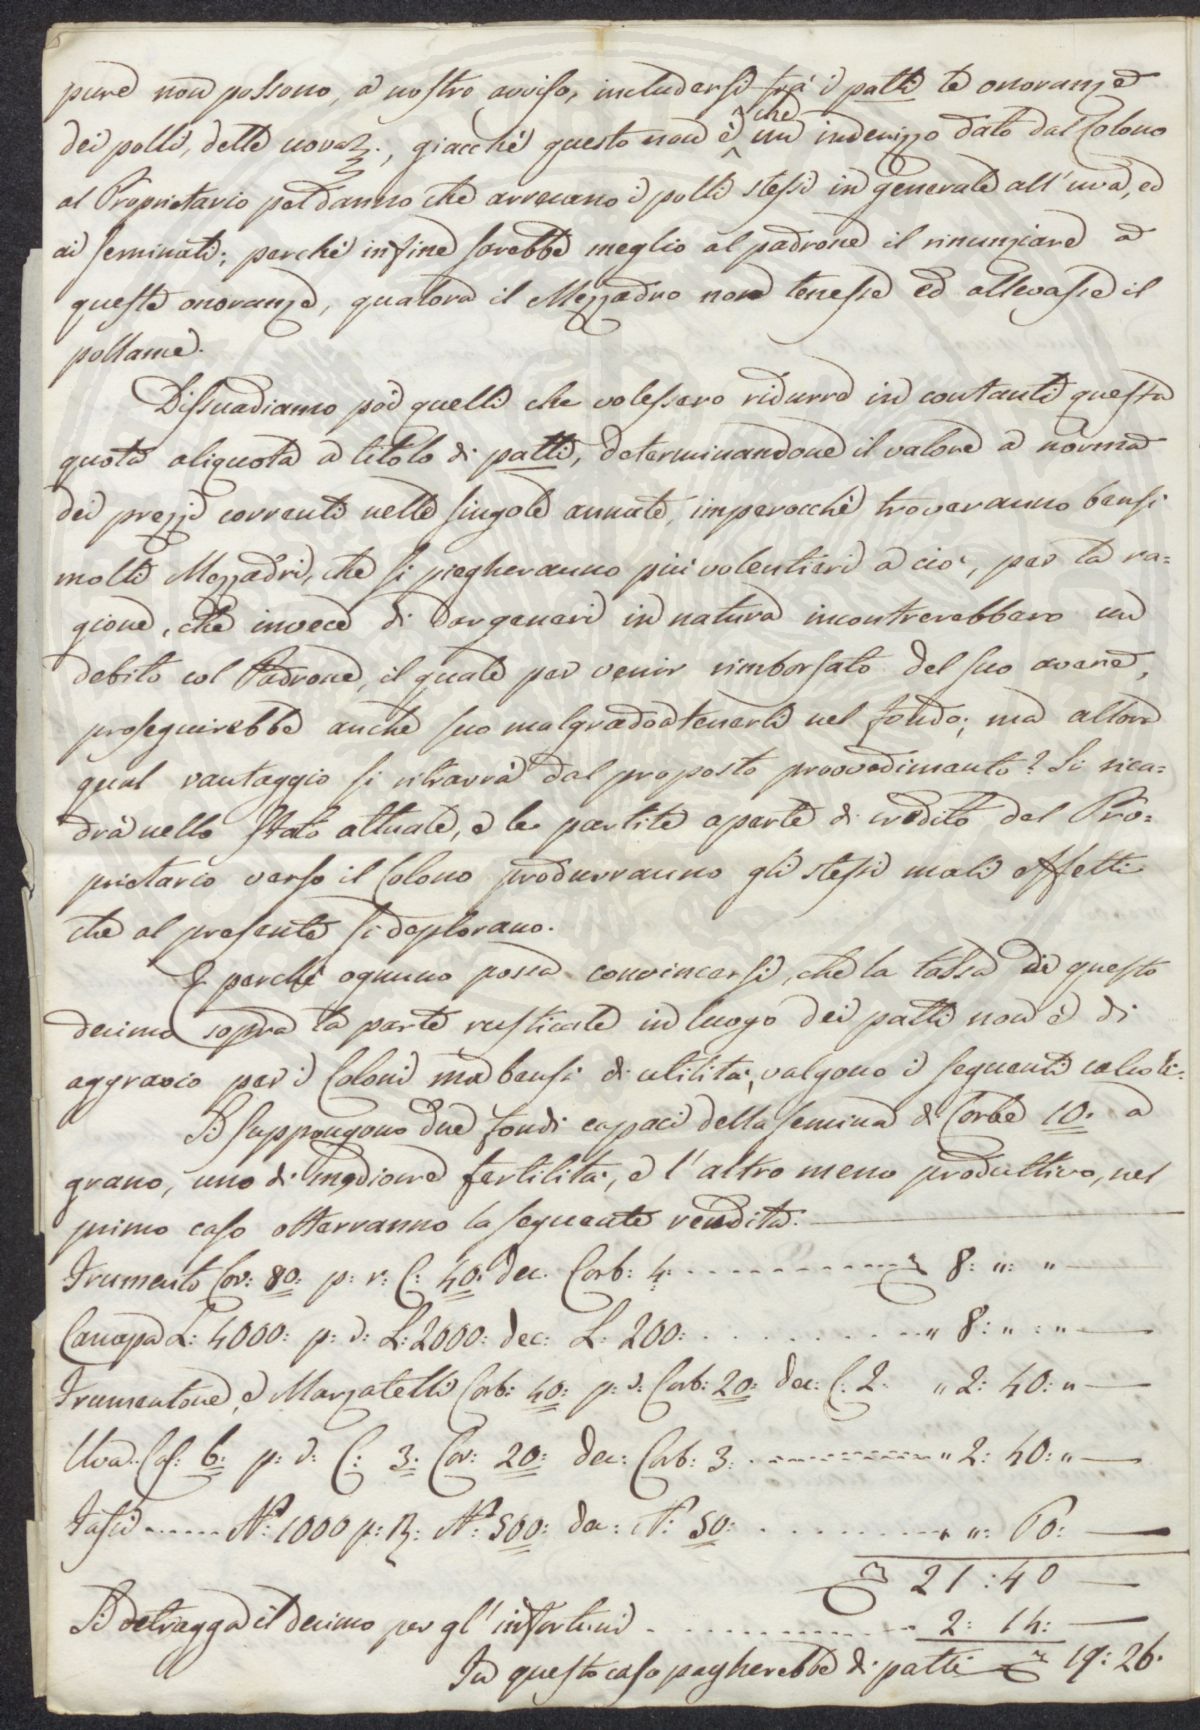 pure non possono, a nostro avviso, includersi fra' i patti le onoranze
dei polli, delle uova &., giacchè questo non è che un indenizzo dato dal Colono
al Proprietario pel danno che arrecano i polli stessi in generale all'uva, ed
ai seminati; perchè infine sarebbe meglio al padrone il rinunziare a
queste onoranze, qualora il Mezzadro non tenesse ed allevasse il
pollame.
Dissuadiamo poi quelli che volessero ridurre in contanti questa
quota aliquota a titolo di patti, determinandone il valore a norma
dei prezzi correnti nelle singole annate, imperocchè troveranno bensi
molti Mezzadri, che si piegheranno più volentieri a ciò, per la ra=
gione, che invece di dar generi in natura incontrerebbero un
debito col Padrone, il quale per venir rimborsato del suo avere,
proseguirebbe anche suo malgrado a tenerli nel fondo; ma allora
qual vantaggio si ritrarrà dal proposto provvedimento? Si rica=
drà nello stato attuale, e le partite aperte di credito del Pro=
prietario verso il Colono produrranno gli stessi mali effetti
che al presente si deplorano.
E perchè ognuno possa convincersi, che la tassa di questo
decimo sopra la parte rusticale in luogo dei patti non è di
aggravio per i Coloni ma bensi di utilità, valgono i seguenti calcoli:
Si suppongono due fondi capaci della semina di Corbe 10: a
grano, uno di mediocre fertilità, e l'altro meno produttivo, nel
primo caso otterranno la seguente rendita:
Frumento Cor: 80: p: r: C: 40: dec. Corb: 4: 8: ": "
Canapa L: 4000: p: r: L: 2000: dec: L: 200: " 8: " : "
Frumentone, e Marzatelli Corb: 40: p: r: Corb: 20: dec: C: 2. " 2: 40: "
Uva.. Cas: 6: p: r: C: 3: Cor: 20: dec: Corb: 3: " 2: 40: "
Fasci N.° 1000 p: R: N.° 500: de: N.° 50: " ": 60:
21: 40
Si detragga il decimo per gl'infortuni 2: 14:
In questo caso pagherebbe di patti 19: 26.